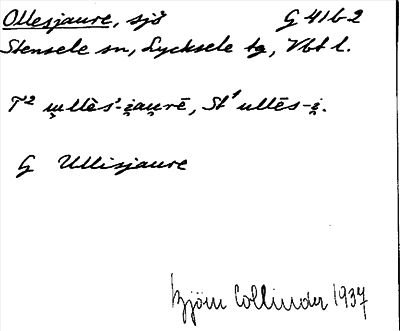 Ollesjaure, sjö G 41 b 2
Stensele sn, Lycksele tg, Vbt l.
T² u̯ullēs'-i̯au̯rē, St' ullēs-i̯.
G Ullisjaure
Björn Collinder 1937